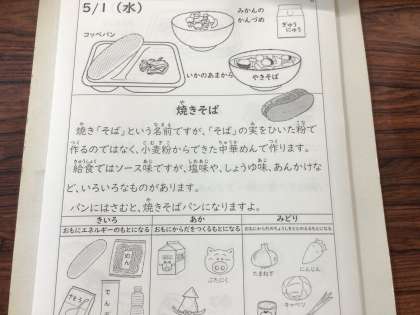 5/1（水）
みかんの
かんづめ
ぎゅう
にゅう
コッペパン
いかのあまから
やきそば
焼きそば
焼き「そば」という名前ですが、「そば」の実をひいた粉で
作るのではなく、小麦粉からできた中華めんで作ります。
給食ではソース味ですが、塩味や、しょうゆ味、あんかけな
ど、いろいろなものがあります。
パンにはさむと、焼きそばパンになりますよ。
きいろ あか みどり
おもにエネルギーのもとになる おもにからだをつくるもとになる おもにからだのちょうしをととのえるもとになる
めん
ぶたにく
たまねぎ
にんじん
さとう
でんぷん
キャベツ